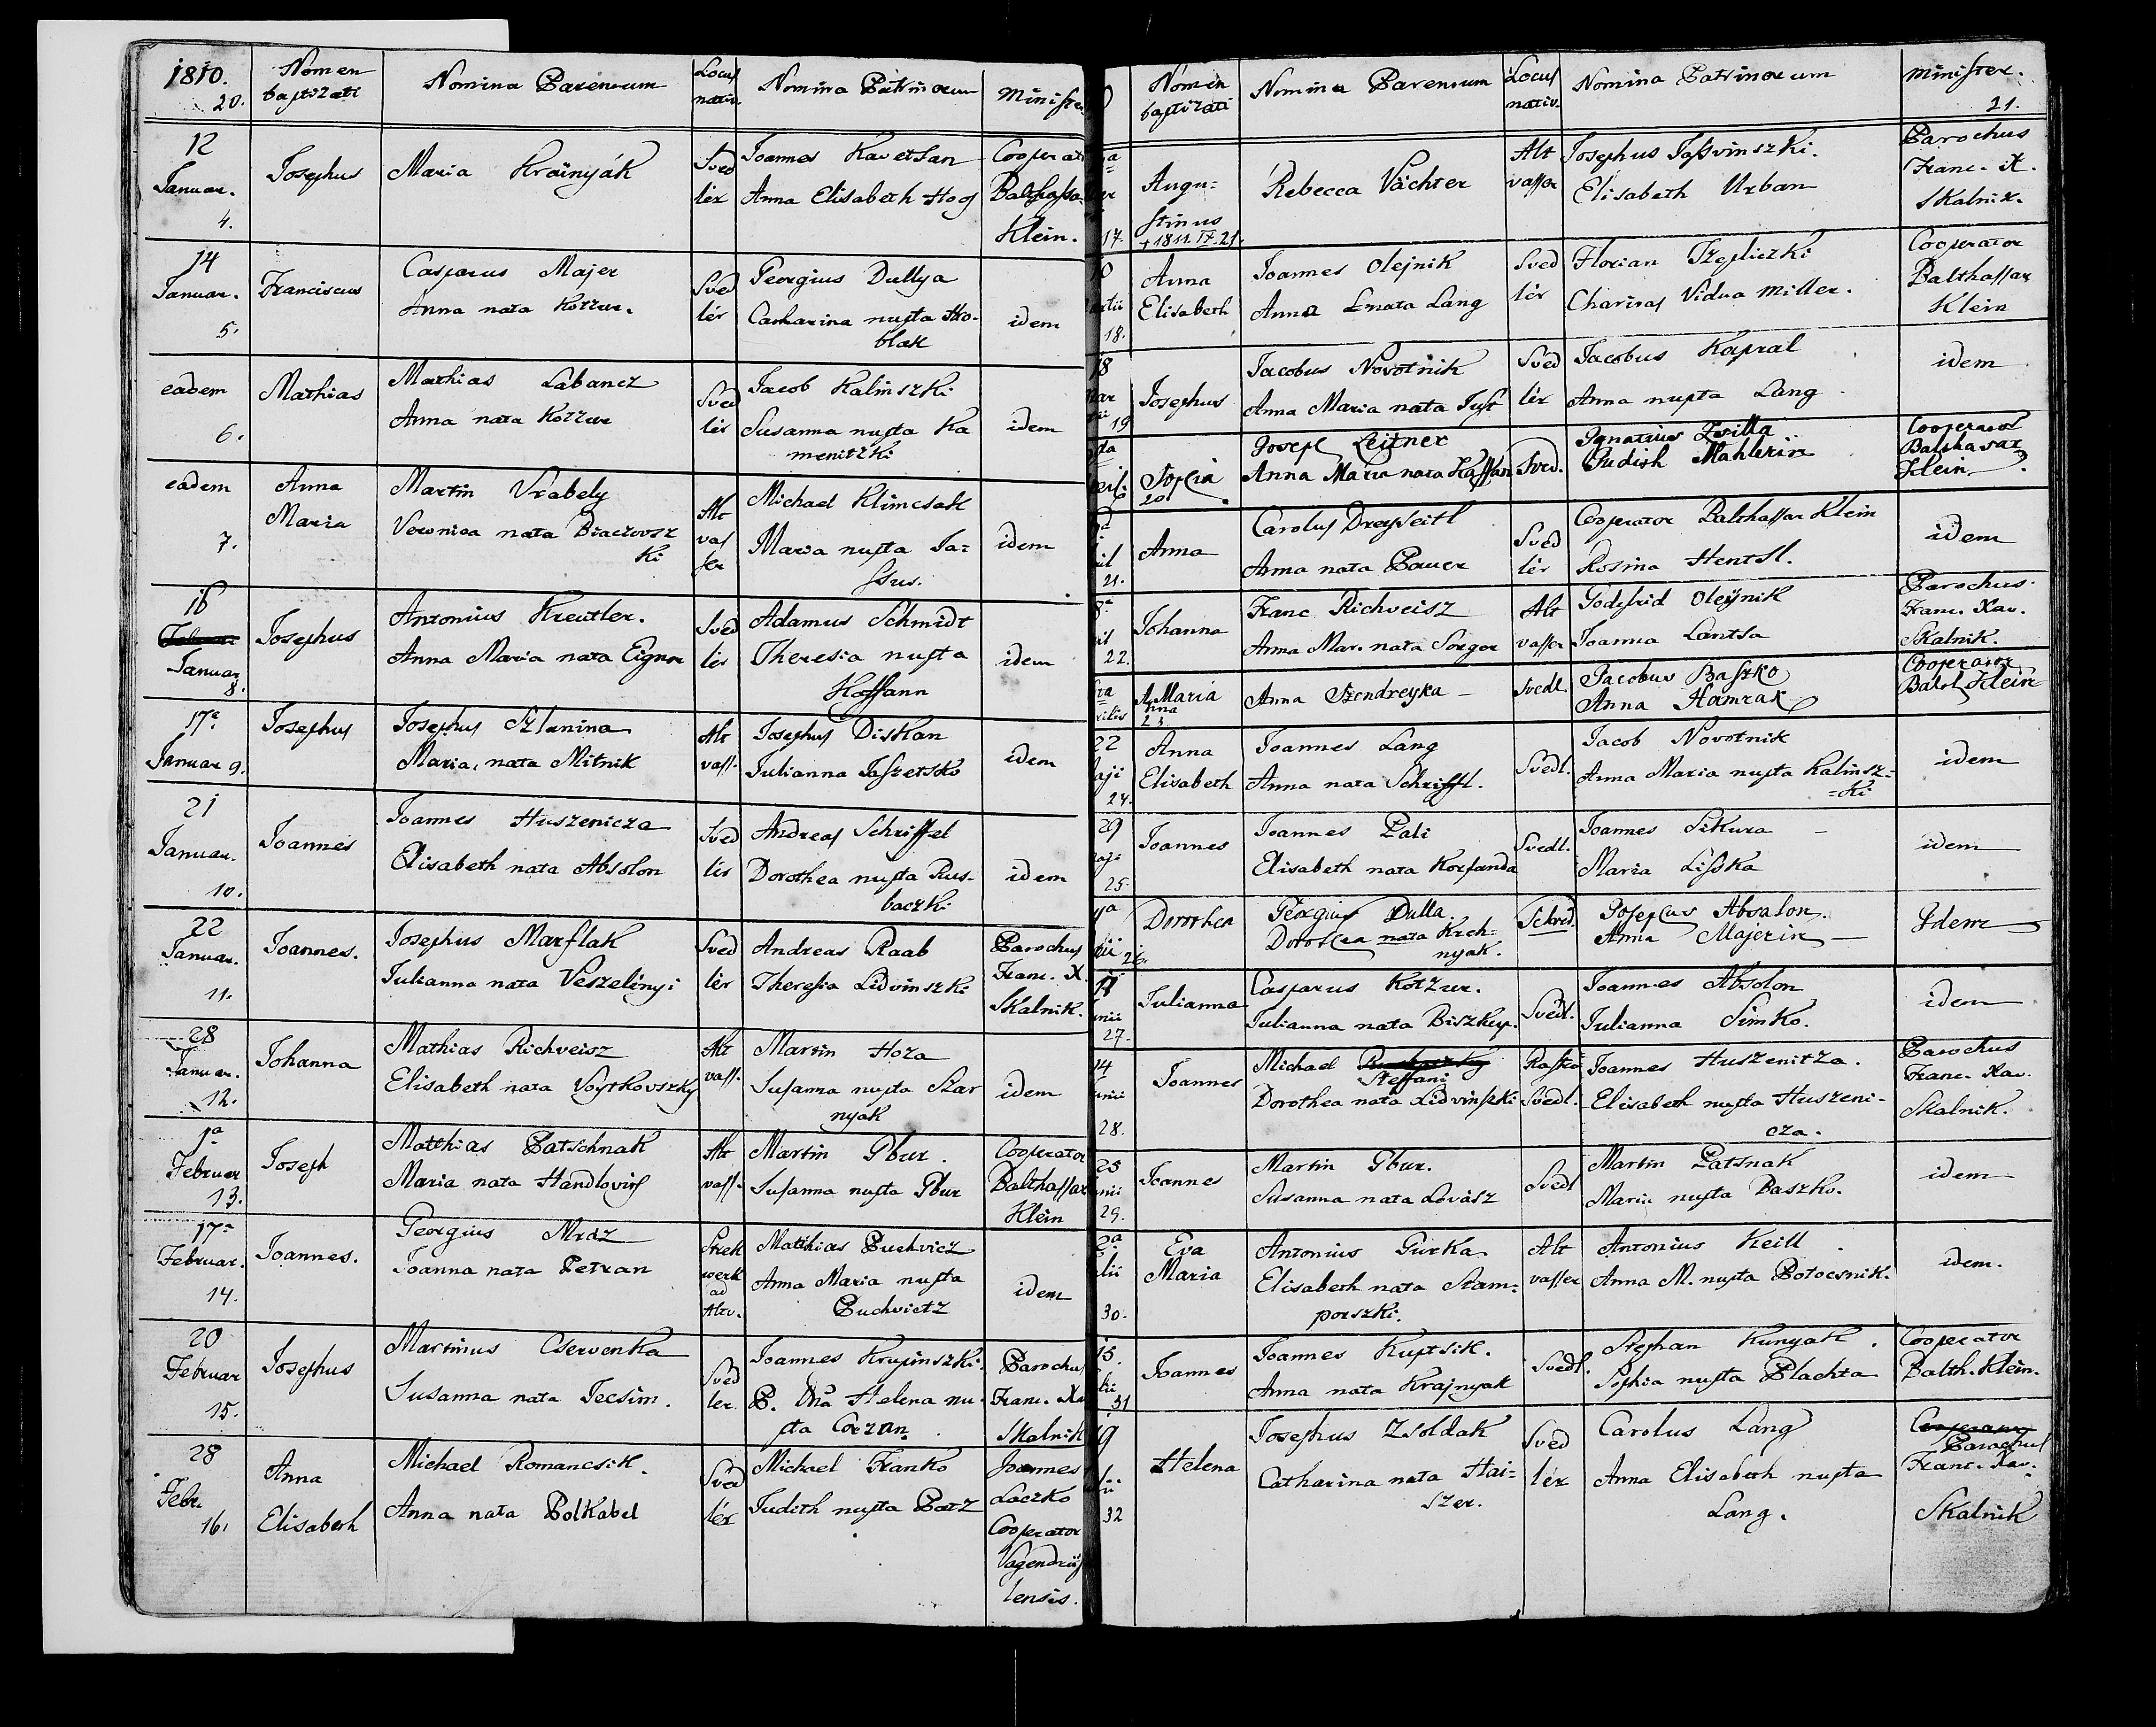 1810.
20.
Nomen
baptizati
Nomina Parentum
Locus
nativ.
Nomina Patrinorum
Minister
12
Januar.
4.
Josephus
Maria Krainyák
Sved
lér
Joannes Kavetsan
Anna Elisabeth Hoos
Cooperat
Balthassa
Klein.
14
Januar.
5.
Franciscus
Casparus Majer
Anna nata Kotzur.
Sved
lér
Georgius Dullya
Catharina nupta Ho-
blak
idem
eadem
6.
Mathias
Mathias Labancz
Anna nata Kotzur
Sved
lér
Jacob Kalinszki
Susanna nupta Ka
menitzki
idem
eadem
7.
Anna
Maria
Martin Vrabely
Veronica nata Biaczovsz
ki
Alt
vas
ser
Michael Klimcsak
Maria nupta Ja-
ssus.
idem
16
Januar
8.
Josephus
Antonius Kreutler.
Anna Maria nata Eigner
Sved
lér
Adamus Schmidt
Theresia nupta
Hoffann
idem
17a
Januar 9.
Josephus
Josephus Szlanina
Maria nata Mitnik
Alt
vass.
Josephus Diskan
Julianna Jaszetsko
idem
21
Januar.
10.
Joannes
Joannes Huszenicza
Elisabeth nata Absolon
Sved
lér
Andreas Schriffel
Dorothea nupta Rus-
baczki
idem
22
Januar.
11.
Joannes.
Josephus Marflak
Julianna nata Veszelinyi
Sved
lér
Andreas Raab
Theresia Lidvinszki
Parochus
Franc. X
Skalnik.
28
Januar.
12.
Johanna
Mathias Richveisz
Elisabeth nata Voytkovszky
Alt
vass.
Martin Hoza
Susanna nupta Szar
nyak
idem
1a
Februar
13.
Joseph
Matthias Patschnak
Maria nata Handlovits
Alt
vass.
Martin Gbur.
Susanna nupta Gbur
Cooperator
Balthassar
Klein
17a
Februar.
14.
Joannes.
Georgius Mráz
Joanna nata Petran
Strek
werk
ad
Altv.
Matthias Puchvicz
Anna Maria nupta
Puchvietz
idem
20
Februar
15.
Josephus
Martinus Cservenka
Susanna nata Jecsim.
Sved
ler.
Joannes Krupinszki.
P. Dna Helena nu-
pta Corzan
Parochus
Franc. Xa
Skalnik
28
Febr.
16.
Anna
Elisabeth
Michael Romancsik.
Anna nata Polkabel
Sved
lér
Michael Franko
Judith nupta Patz
Joannes
Laczko
Cooperator
Vagendrüs
lensis.
Nomen
baptizati
Nomina Parentum
Locus
nativ.
Nomina Patrinorum
Minister.
21.
17.
Augu=
stinus
+1811.IV.21.
Rebecca Vächter
Alt
vasser
Josephus Jassvinszki.
Elisabeth Urban
Parochus
Franc. X.
Skalnik.
18.
Anna
Elisabeth
Joannes Olejnik
Anna nata Lang
Sved
lér
Florian Tzepliczki
Charitas Vidua Miller.
Cooperator
Balthassar
Klein
18
19
Josephus
Jacobus Novotnik
Anna Maria nata Just
Sved
lér
Jacobus Kapral
Anna nupta Lang
idem
Sophia
20.
Joseph Leitner
Anna Maria nata Hoffan
Sved.
Ignatius Zsilla
Judith Mahlerin
Cooperator
Balthasar
Klein
21.
Anna
Carolus Dreyseitl
Anna nata Pauer
Sved
lér
Cooperator Balthassar Klein
Rosina Hentsl.
idem
22.
Johanna
Franc Richveisz
Anna Mar. nata Sorger
Alt
vasser
Godefrid Olejnik
Joanna Lantsa
Parochus
Franc. Xav.
Skalnik.
A Maria
nna
23.
Anna Szendreyka
Svedl.
Jacobus Baszko
Anna Hamrak
Cooperator
Balth Klein
22
24.
Anna
Elisabeth
Joannes Lang
Anna nata Schriffl.
Svedl.
Jacob Novotnik
Anna Maria nupta Kalinsz=
=ki
idem
29
25.
Joannes
Joannes Pali
Elisabeth nata Korfanda
Svedl.
Joannes Sikura
Maria Lisska
idem
26.
Dorothea
Georgius Dulla
Dorothea nata Krch=
nyak.
Schved.
Josephus Absalon
Anna Majerin
Idem
27.
Julianna
Casparus Kotzur.
Julianna nata Biszkup.
Svedl.
Joannes Absolon
Julianna Simko.
idem
14
28.
Joannes
Michael
Steffani
Dorothea nata Lidvinszki
Svedl.
Joannes Huszenitza.
Elisabeth nupta Huszeni-
cza.
Parochus
Franc. Xav.
Skalnik.
25
29.
Joannes
Martin Gbur.
Susanna nata Lovász
Svedl
Martin Patsnak
Maria nupta Baszko.
idem
30.
Eva
Maria
Antonius Gurka
Elisabeth nata Stam=
porszki.
Alt
vasser
Antonius Keill
Anna M. nupta Potocsnik.
idem.
15.
31
Joannes
Joannes Kuptsik.
Anna nata Krajnyak
Svedl.
Stephan Kunyak.
Sophia nupta Plachta
Cooperator
Balth. Klein.
32
Helena
Josephus Zsoldak
Catharina nata Hai=
szer.
Sved
lér
Carolus Lang
Anna Elisabeth nupta
Lang.
Cooperator
Parochus
Franc. Xav.
Skalnik